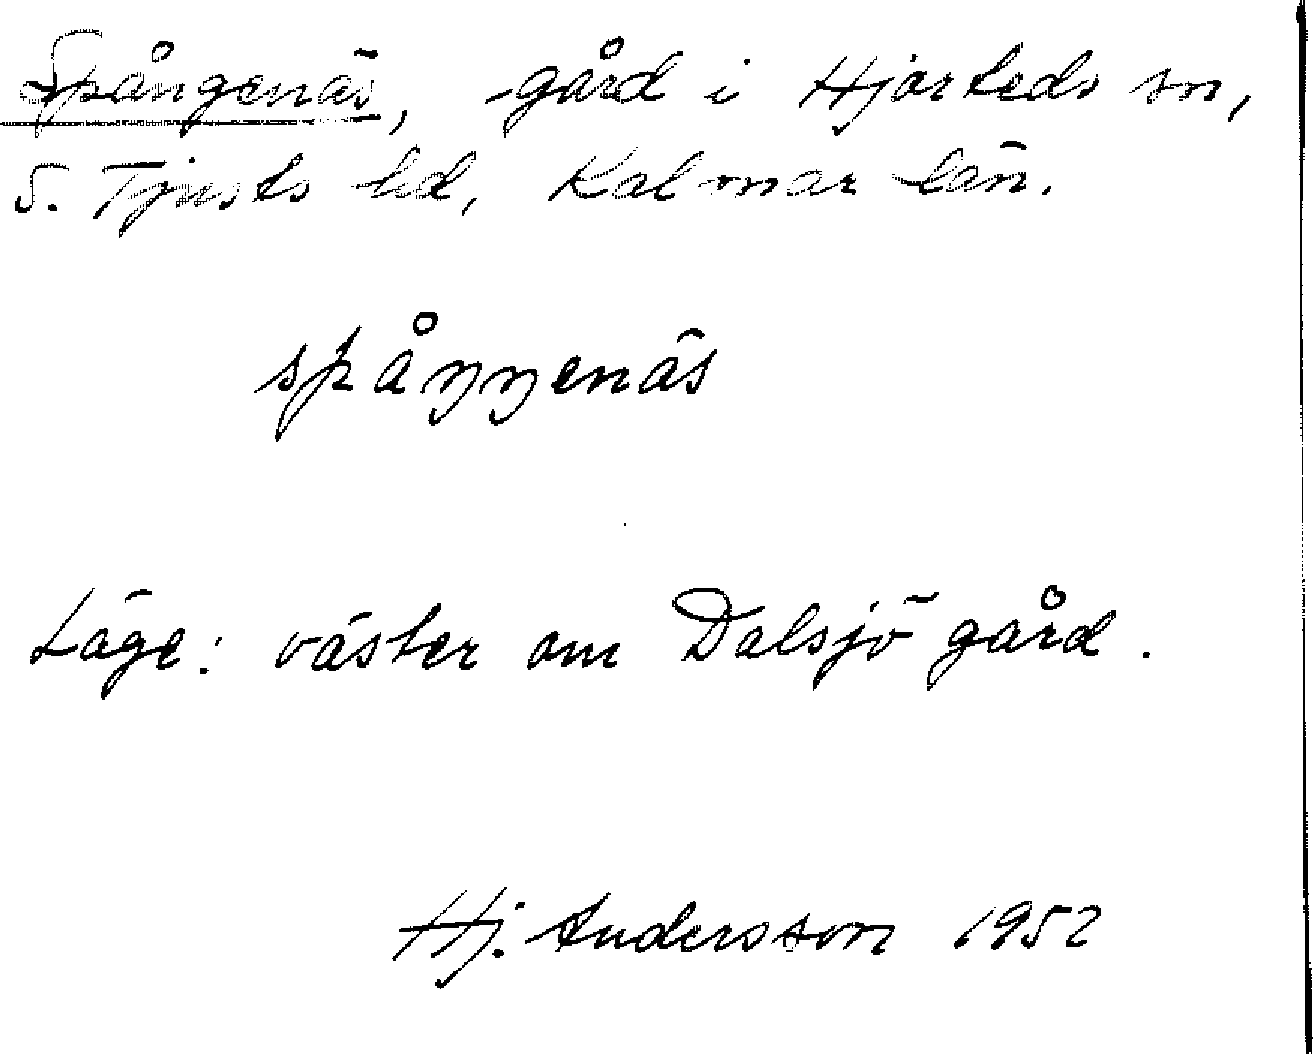 Spångenäs, gård i Hjorteds sn,
S. Tjusts hd, Kalmar län.
spåŋŋenäs
Läge: väster om Dalsjö gård.
Hj. Andersson 1952